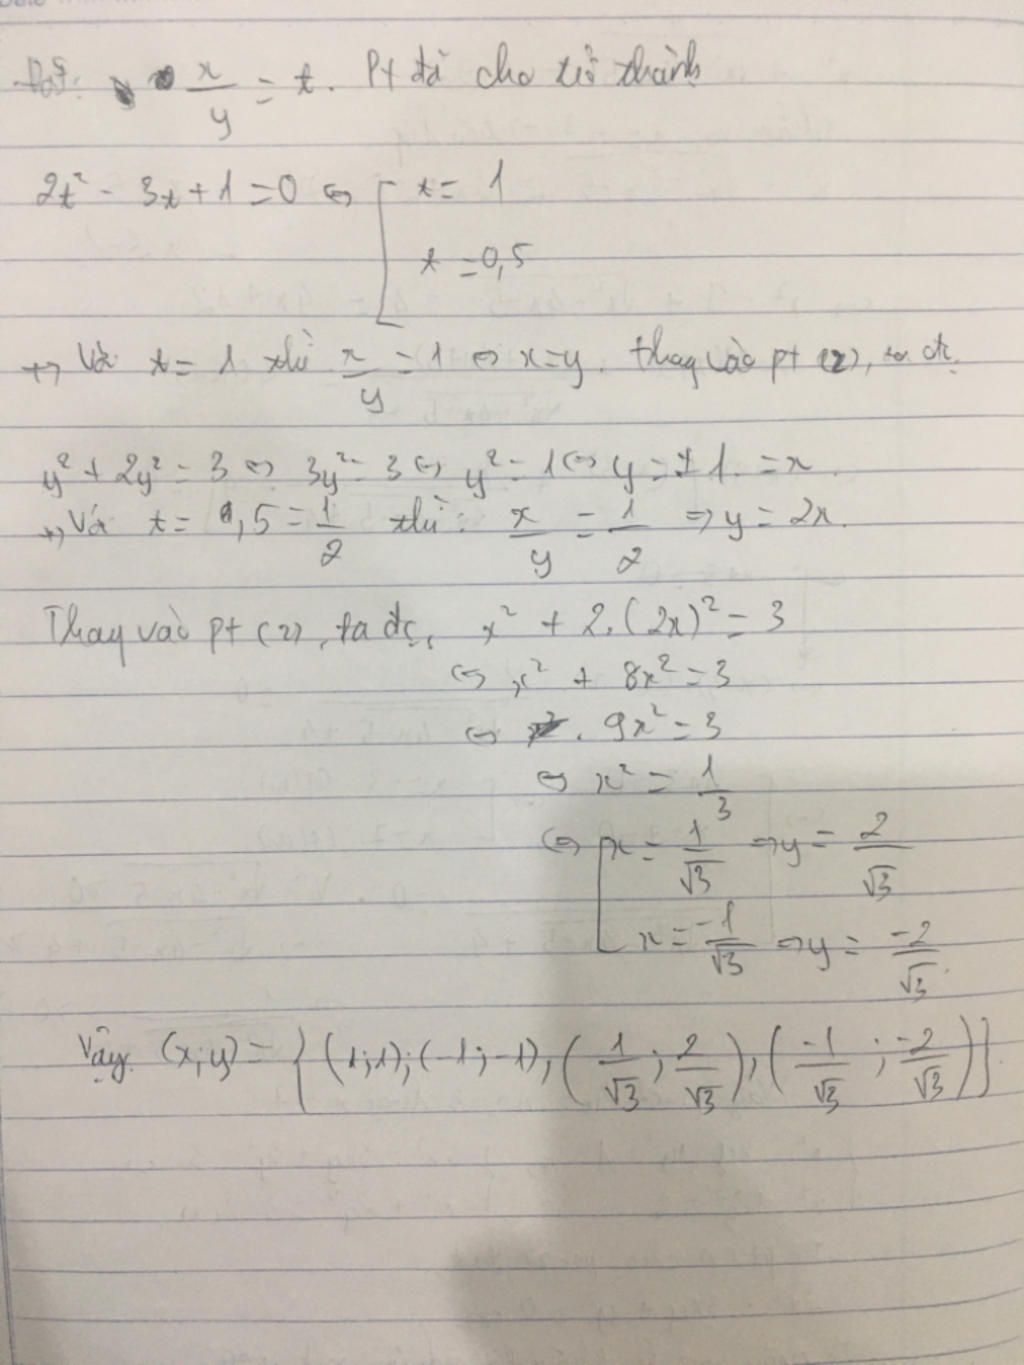 Đặt: x/y = t. Pt đã cho trở thành
2t² - 3t + 1 = 0 ⇔ [ t = 1
t = 0,5
+, Với t = 1 thì x/y = 1 ⇔ x = y. Thay vào pt (2), ta đc.
y² + 2y² = 3 ⇔ 3y² = 3 ⇔ y² = 1 ⇔ y = ±1 = x.
+, Với t = 0,5 = 1/2 thì: x/y = 1/2 ⇒ y = 2x.
Thay vào pt (2), ta đc, x² + 2.(2x)² = 3
⇔ x² + 8x² = 3
⇔ 9x² = 3
⇔ x² = 1/3
⇔ [ x = 1/√3 ⇒ y = 2/√3
x = -1/√3 ⇒ y = -2/√3
Vậy (x;y) = {(1;1);(-1;-1);(1/√3;2/√3);(-1/√3;-2/√3)}